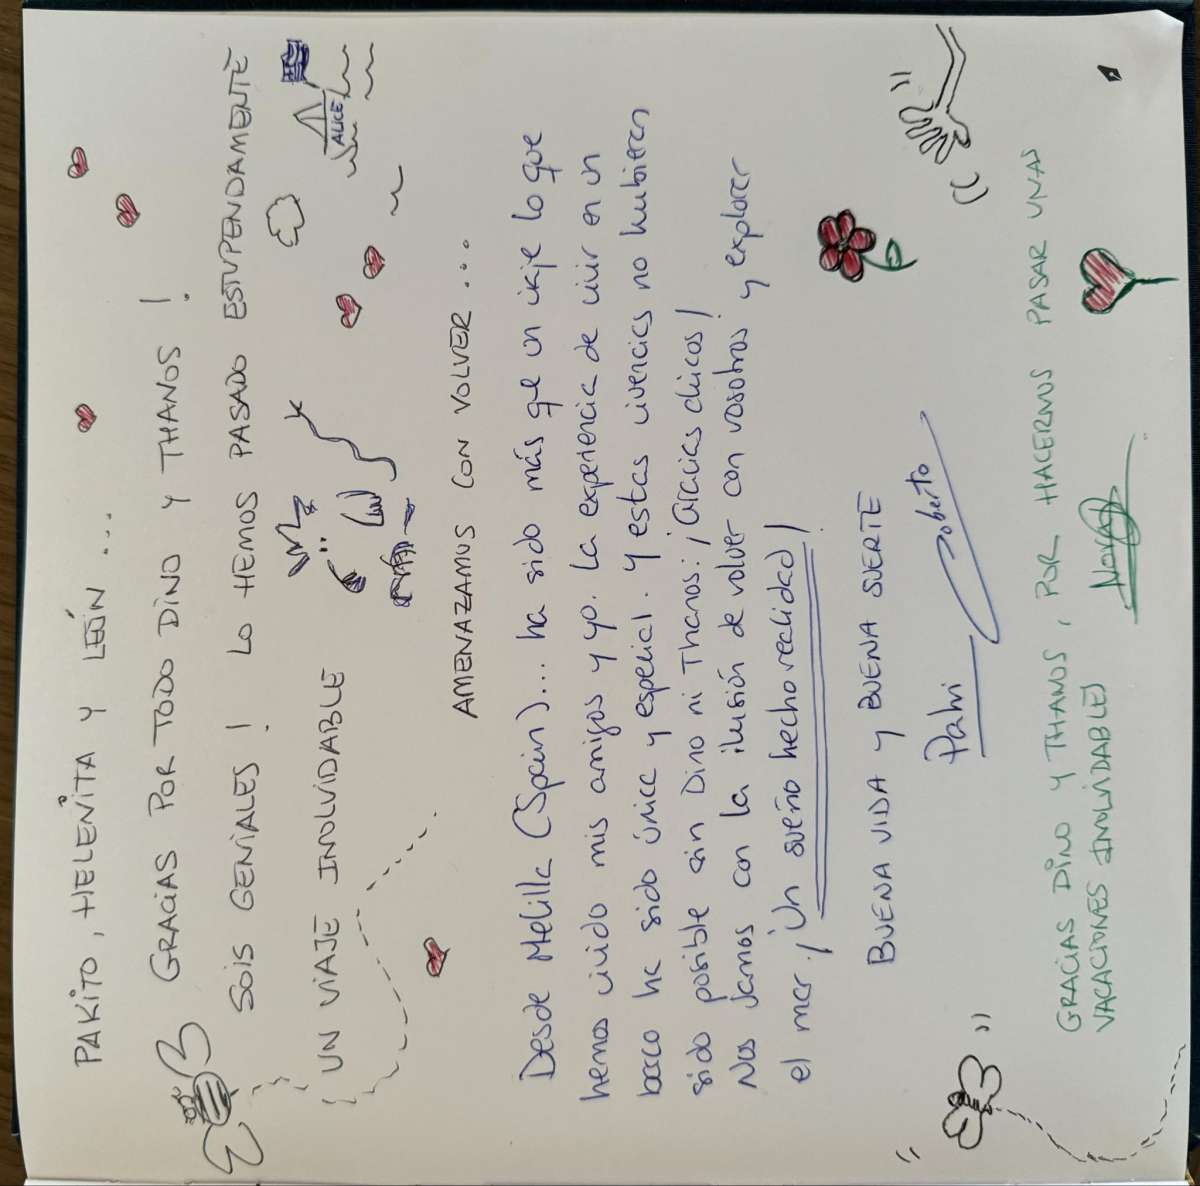 PAKITO, HELENITA Y LEÓN...
GRACIAS POR TODO DINO Y THANOS!
SOIS GENIALES! LO HEMOS PASADO ESTUPENDAMENTE
ALICE
UN VIAJE INOLVIDABLE
AMENAZAMOS CON VOLVER...
Desde Melilla (Spain)... ha sido más que un viaje lo que
hemos vivido mis amigos y yo. La experiencia de vivir en un
barco ha sido única y especial. Y estas vivencias no hubieran
sido posible sin Dino ni Thanos: ¡Gracias chicos!
Nos vamos con la ilusión de volver con vosotros y explorar
el mar. ¡Un sueño hecho realidad!
BUENA VIDA Y BUENA SUERTE
Palmi
Roberto
GRACIAS DINO Y THANOS, POR HACERNOS PASAR UNAS
VACACIONES INOLVIDABLES